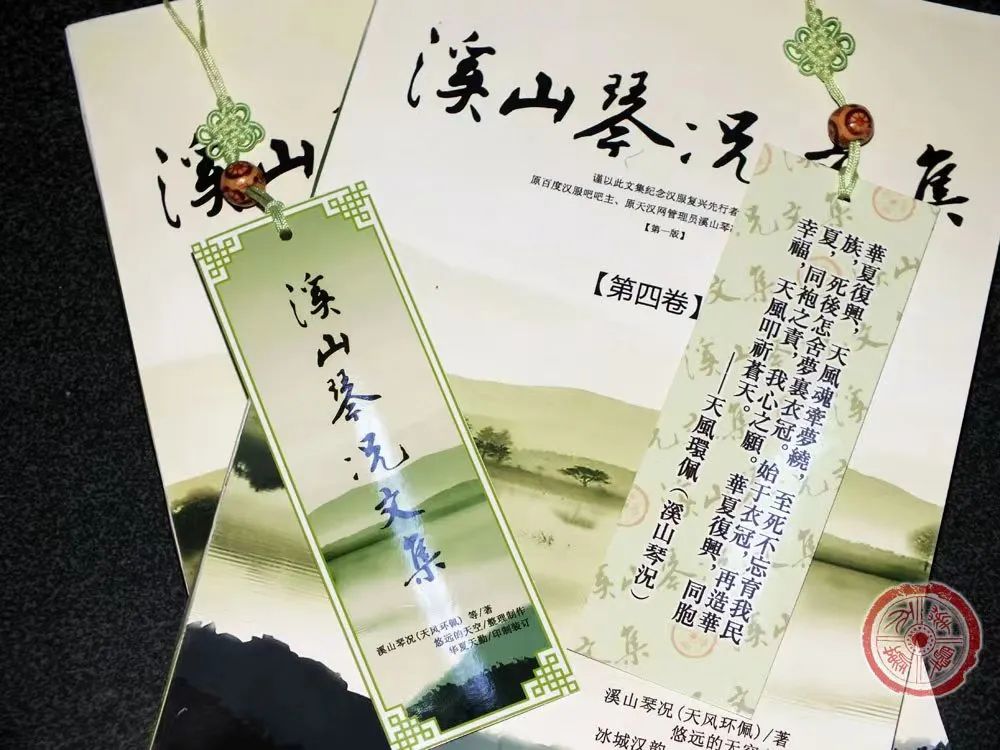 溪山
溪山琴况文集
谨以此文集纪念汉服复兴先行者
原百度汉服吧吧主、原天汉网管理员溪山琴
【第一版】
【第四卷】
溪山琴况(天风环佩)/著
悠远的天空
冰城汉韵
溪山琴况文集
溪山琴况(天风环佩) 等/著
悠远的天空/整理制作
华夏天勤/印制装订
華夏復興，天風魂牽夢繞，至死不忘育我民
族，死後怎舍夢裏衣冠。始于衣冠，再造華
夏，同袍之責，我心之願。華夏復興，同胞
幸福，天風叩祈蒼天。
——天風環佩（溪山琴況）